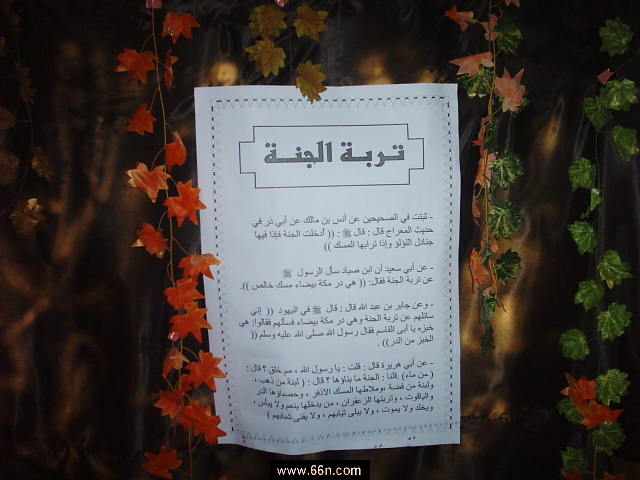 تربة الجنة
- ثبتت في الصحيحين عن أنس بن مالك عن أبي ذر في
حديث المعراج قال : قال ﷺ : (( أدخلت الجنة فإذا فيها
جنادل اللؤلؤ وإذا ترابها المسك ))
- عن أبي سعيد أن ابن صياد سأل الرسول ﷺ
عن تربة الجنة فقال: (( هي در مكة بيضاء مسك خالص )).
- وعن جابر بن عبد الله قال : قال ﷺ في اليهود (( إني
سائلهم عن تربة الجنة وهي در مكة بيضاء فسألهم فقالوا: هي
خبزه يا أبى القاسم فقال رسول الله صلى الله عليه وسلم ((
الخبز من الدر)) .
- عن أبي هريرة قال : قلت : يا رسول الله ، مم خلق ؟ قال :
( من ماء) .قلنا : الجنة ما بناؤها ؟ قال : ( لبنة من ذهب ،
ولبنة من فضة ،وملاطها المسك الاذفر ، وحصباؤها الدر
والياقوت ، وتربتها الزعفران ، من يدخلها ينعم ولا يبأس ،
ويخلد ولا يموت ، ولا يبلى ثيابهم ، ولا يفنى شبابهم )
www.66n.com